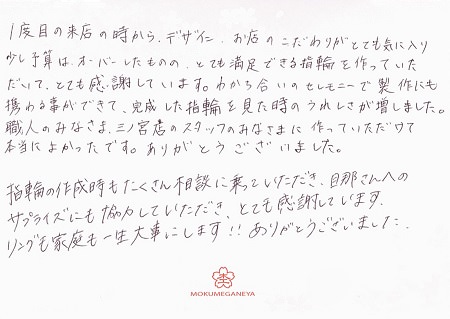 1度目の来店の時から、デザイン、お店のこだわりがとても気に入り
少し予算は、オーバーしたものの、とても満足できる指輪を作っていた
だいて、とても感謝しています。わかち合いのセレモニーで製作にも
携わる事ができて、完成した指輪を見た時のうれしさが増しました。
職人のみなさま、三ノ宮店のスタッフのみなさまに作っていただけて
本当によかったです。ありがとうございました。
指輪の作成時もたくさん相談に乗っていただき、旦那さんへの
サプライズにも協力していただき、とても感謝しています。
リングも家庭も一生大事にします!! ありがとうございました。
MOKUMEGANEYA